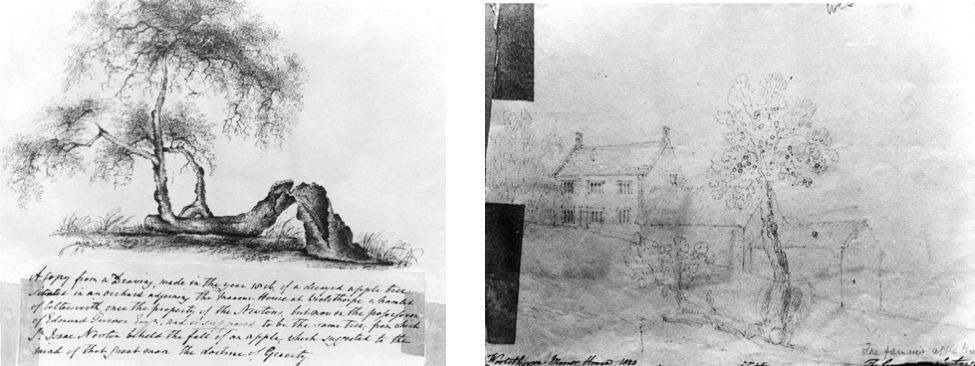 A Copy from a Drawing, made in the year of a decayed apple tree
situated in an orchard adjoining the Manor House at Wolsthorpe a hamlet
of Colterworth, once the property of the Newtons, but now in the possession
of Edmund Turnor Esqr. and is supposed to be the same tree, from which
Sr. Isaac Newton beheld the fall of an apple, which suggested to the
mind of that great man the doctrine of Gravity
Woolsthorpe Manor House 1820
The famous apple tree